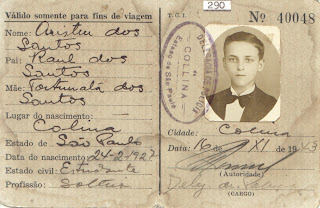 Válido somente para fins de viagem
Nome: dos
Santos
Pai: Raul dos
Santos
Mãe: Fortunata dos
Santos
Lugar do nascimento:
Colina
Estado de São Paulo
Data do nascimento 24-2-1927
Estado civil: Estudante
Profissão: Solteiro
290
Nº 40048
COLINA
Cidade: Colina
Data: 16 de XI de 1943
(Autoridade)
(CARGO)